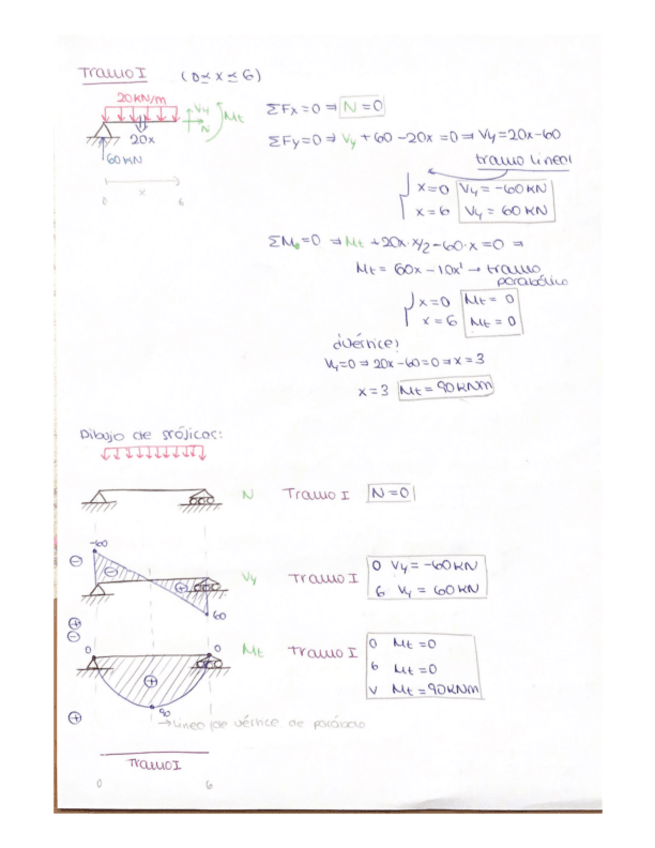 Tramo I (0≤x≤6)
20 KN/m
Vy
Mt
N
20x
60 KN
x
0 6
ΣFx=0 ⇒ N=0
ΣFy=0 ⇒ Vy+60-20x=0 ⇒ Vy=20x-60
tramo lineal
x=0 Vy=-60KN
x=6 Vy=60KN
⇒ Mt+20x·x/2-60·x=0 ⇒
Mt=60x-10x² → tramo
parabólico
x=0 Mt=0
x=6 Mt=0
¿vértice?
Vy=0 ⇒ 20x-60=0 ⇒ x=3
x=3 Mt=90KNm
Dibujo de gráficas:
N Tramo I N=0
-60
⊖ ⊖ ⊕ Vy Tramo I
0 Vy=-60KN
6 Vy=60KN
60
⊕
⊖
0 0 Mt Tramo I
0 Mt=0
6 Mt=0
V Mt=90KNm
⊕
90
⊕ → Línea de vértice de parábola
Tramo I
0 6